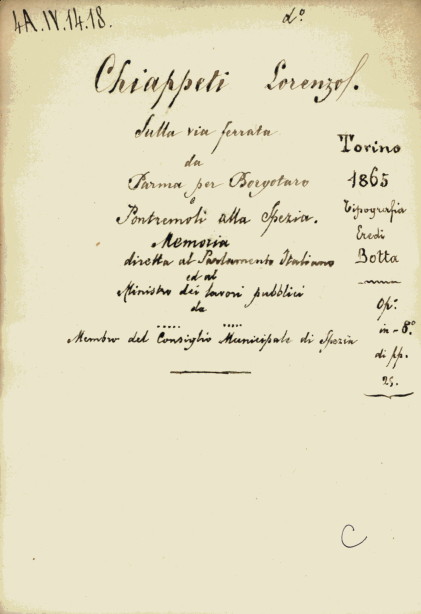 4A.IV.14.18.
d.º
Chiappeti Lorenzo.
Sulla via ferrata
da
Parma per Borgotaro
e
Pontremoli alla Spezia.
Memoria
diretta al Parlamento Italiano
ed al
Ministro dei lavori pubblici
da
Membro del Consiglio Municipale di Spezia
Torino
1865
Tipografia
Eredi
Botta
Op:
in-8.º
di pp.
C